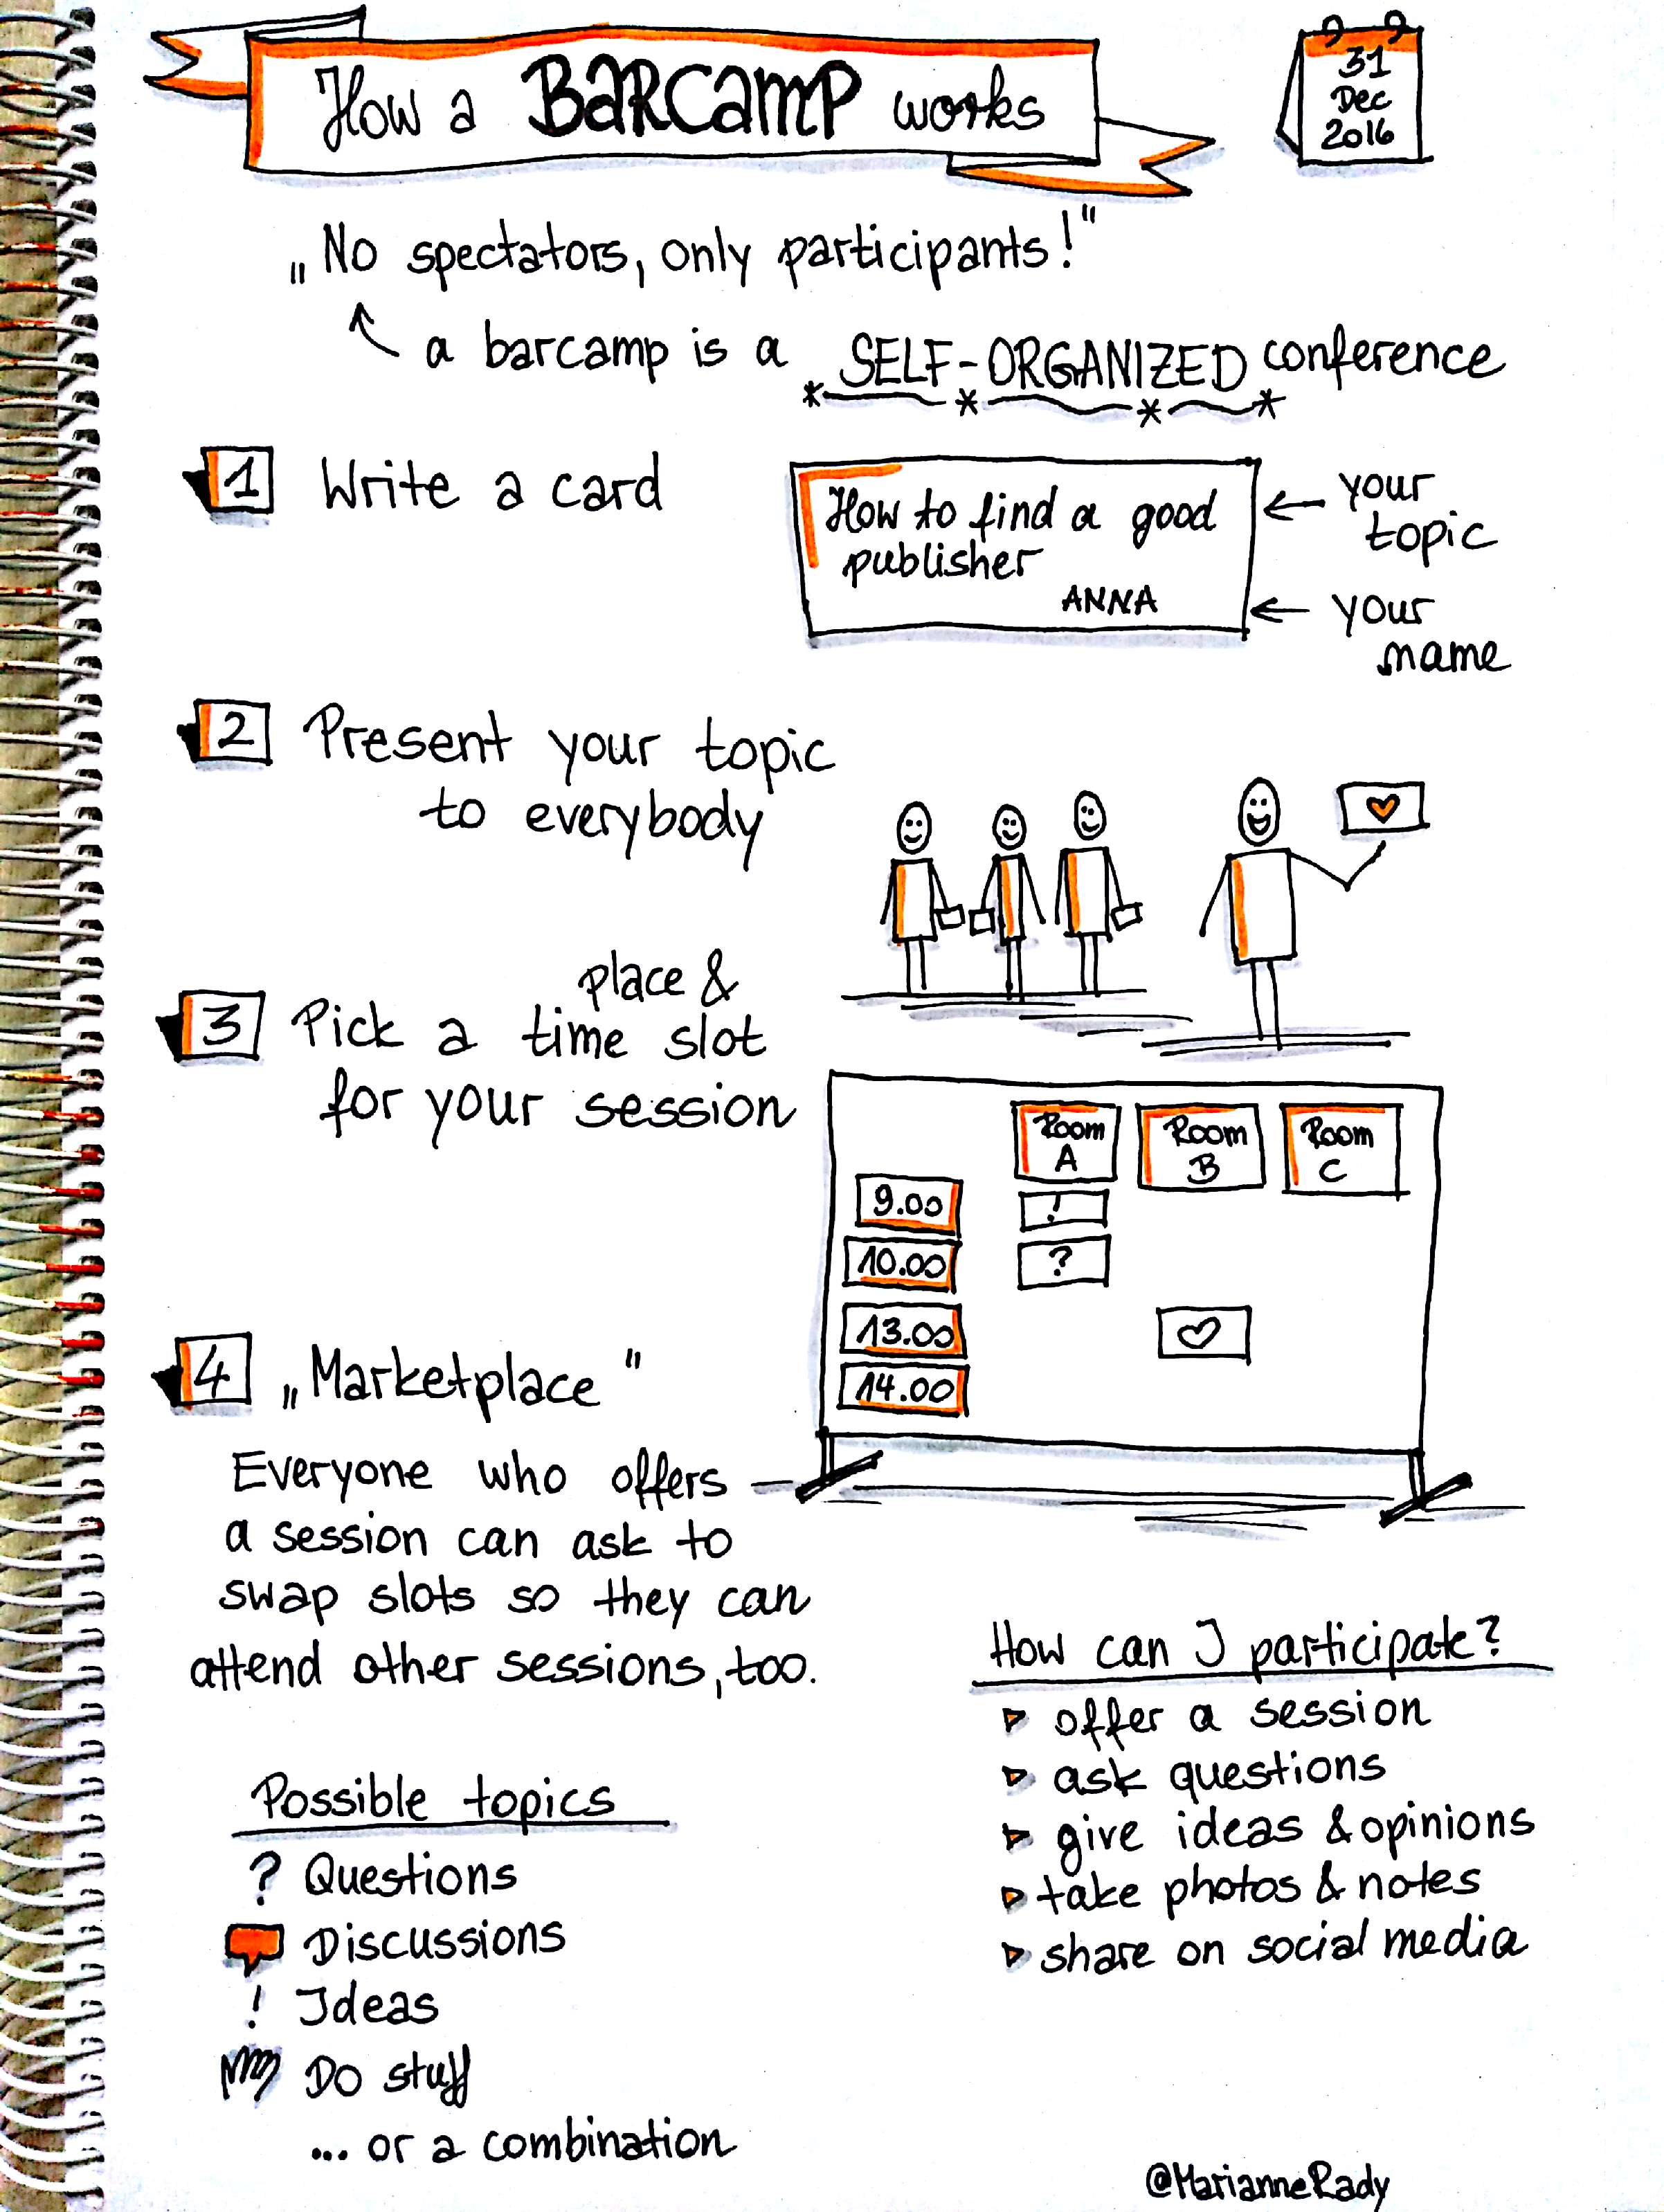 How a BARCAMP works
31
Dec
2016
„No spectators, only participants!"
a barcamp is a SELF-ORGANIZED conference
1 Write a card
How to find a good
publisher
ANNA
your
topic
your
name
2 Present your topic
to everybody
place &
3 Pick a time slot
for your session
Room
A
Room
B
Room
C
9.00
!
10.00
?
13.00
14.00
4 „Marketplace"
Everyone who offers
a session can ask to
swap slots so they can
attend other sessions, too.
Possible topics
? Questions
Discussions
! Ideas
Do stuff
... or a combination
How can I participate?
offer a session
ask questions
give ideas & opinions
take photos & notes
share on social media
@MarianneRady